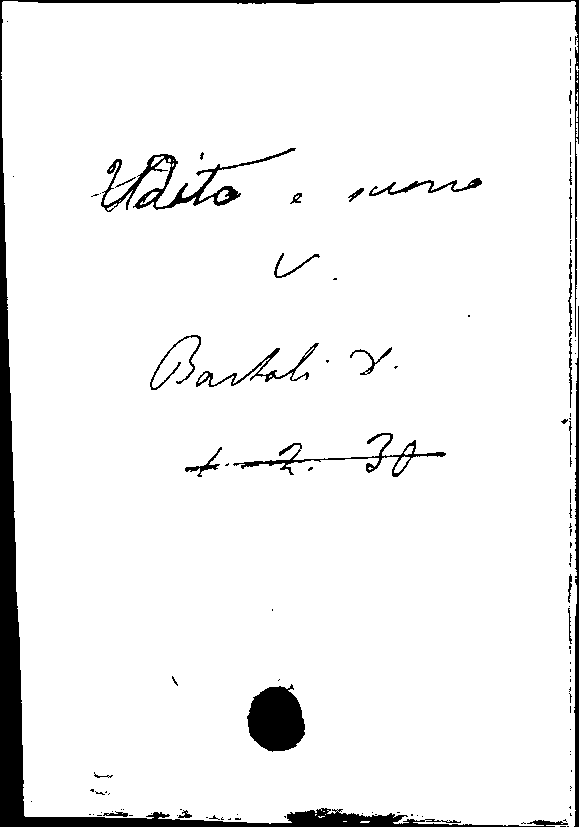 Udito e suono
V.
Bartoli D.
1. 2. 30